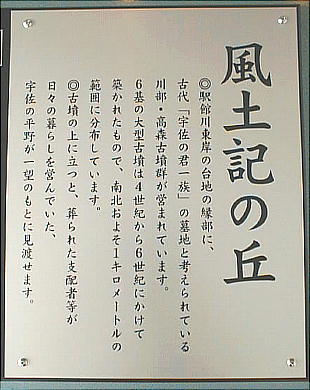 風土記の丘
◎駅館川東岸の台地の縁部に、
古代「宇佐の君一族」の墓地と考えられている
川部・高森古墳群が営まれています。
6基の大型古墳は4世紀から6世紀にかけて
築かれたもので、南北およそ1キロメートルの
範囲に分布しています。
◎古墳の上に立つと、葬られた支配者等が
日々の暮らしを営んでいた、
宇佐の平野が一望のもとに見渡せます。